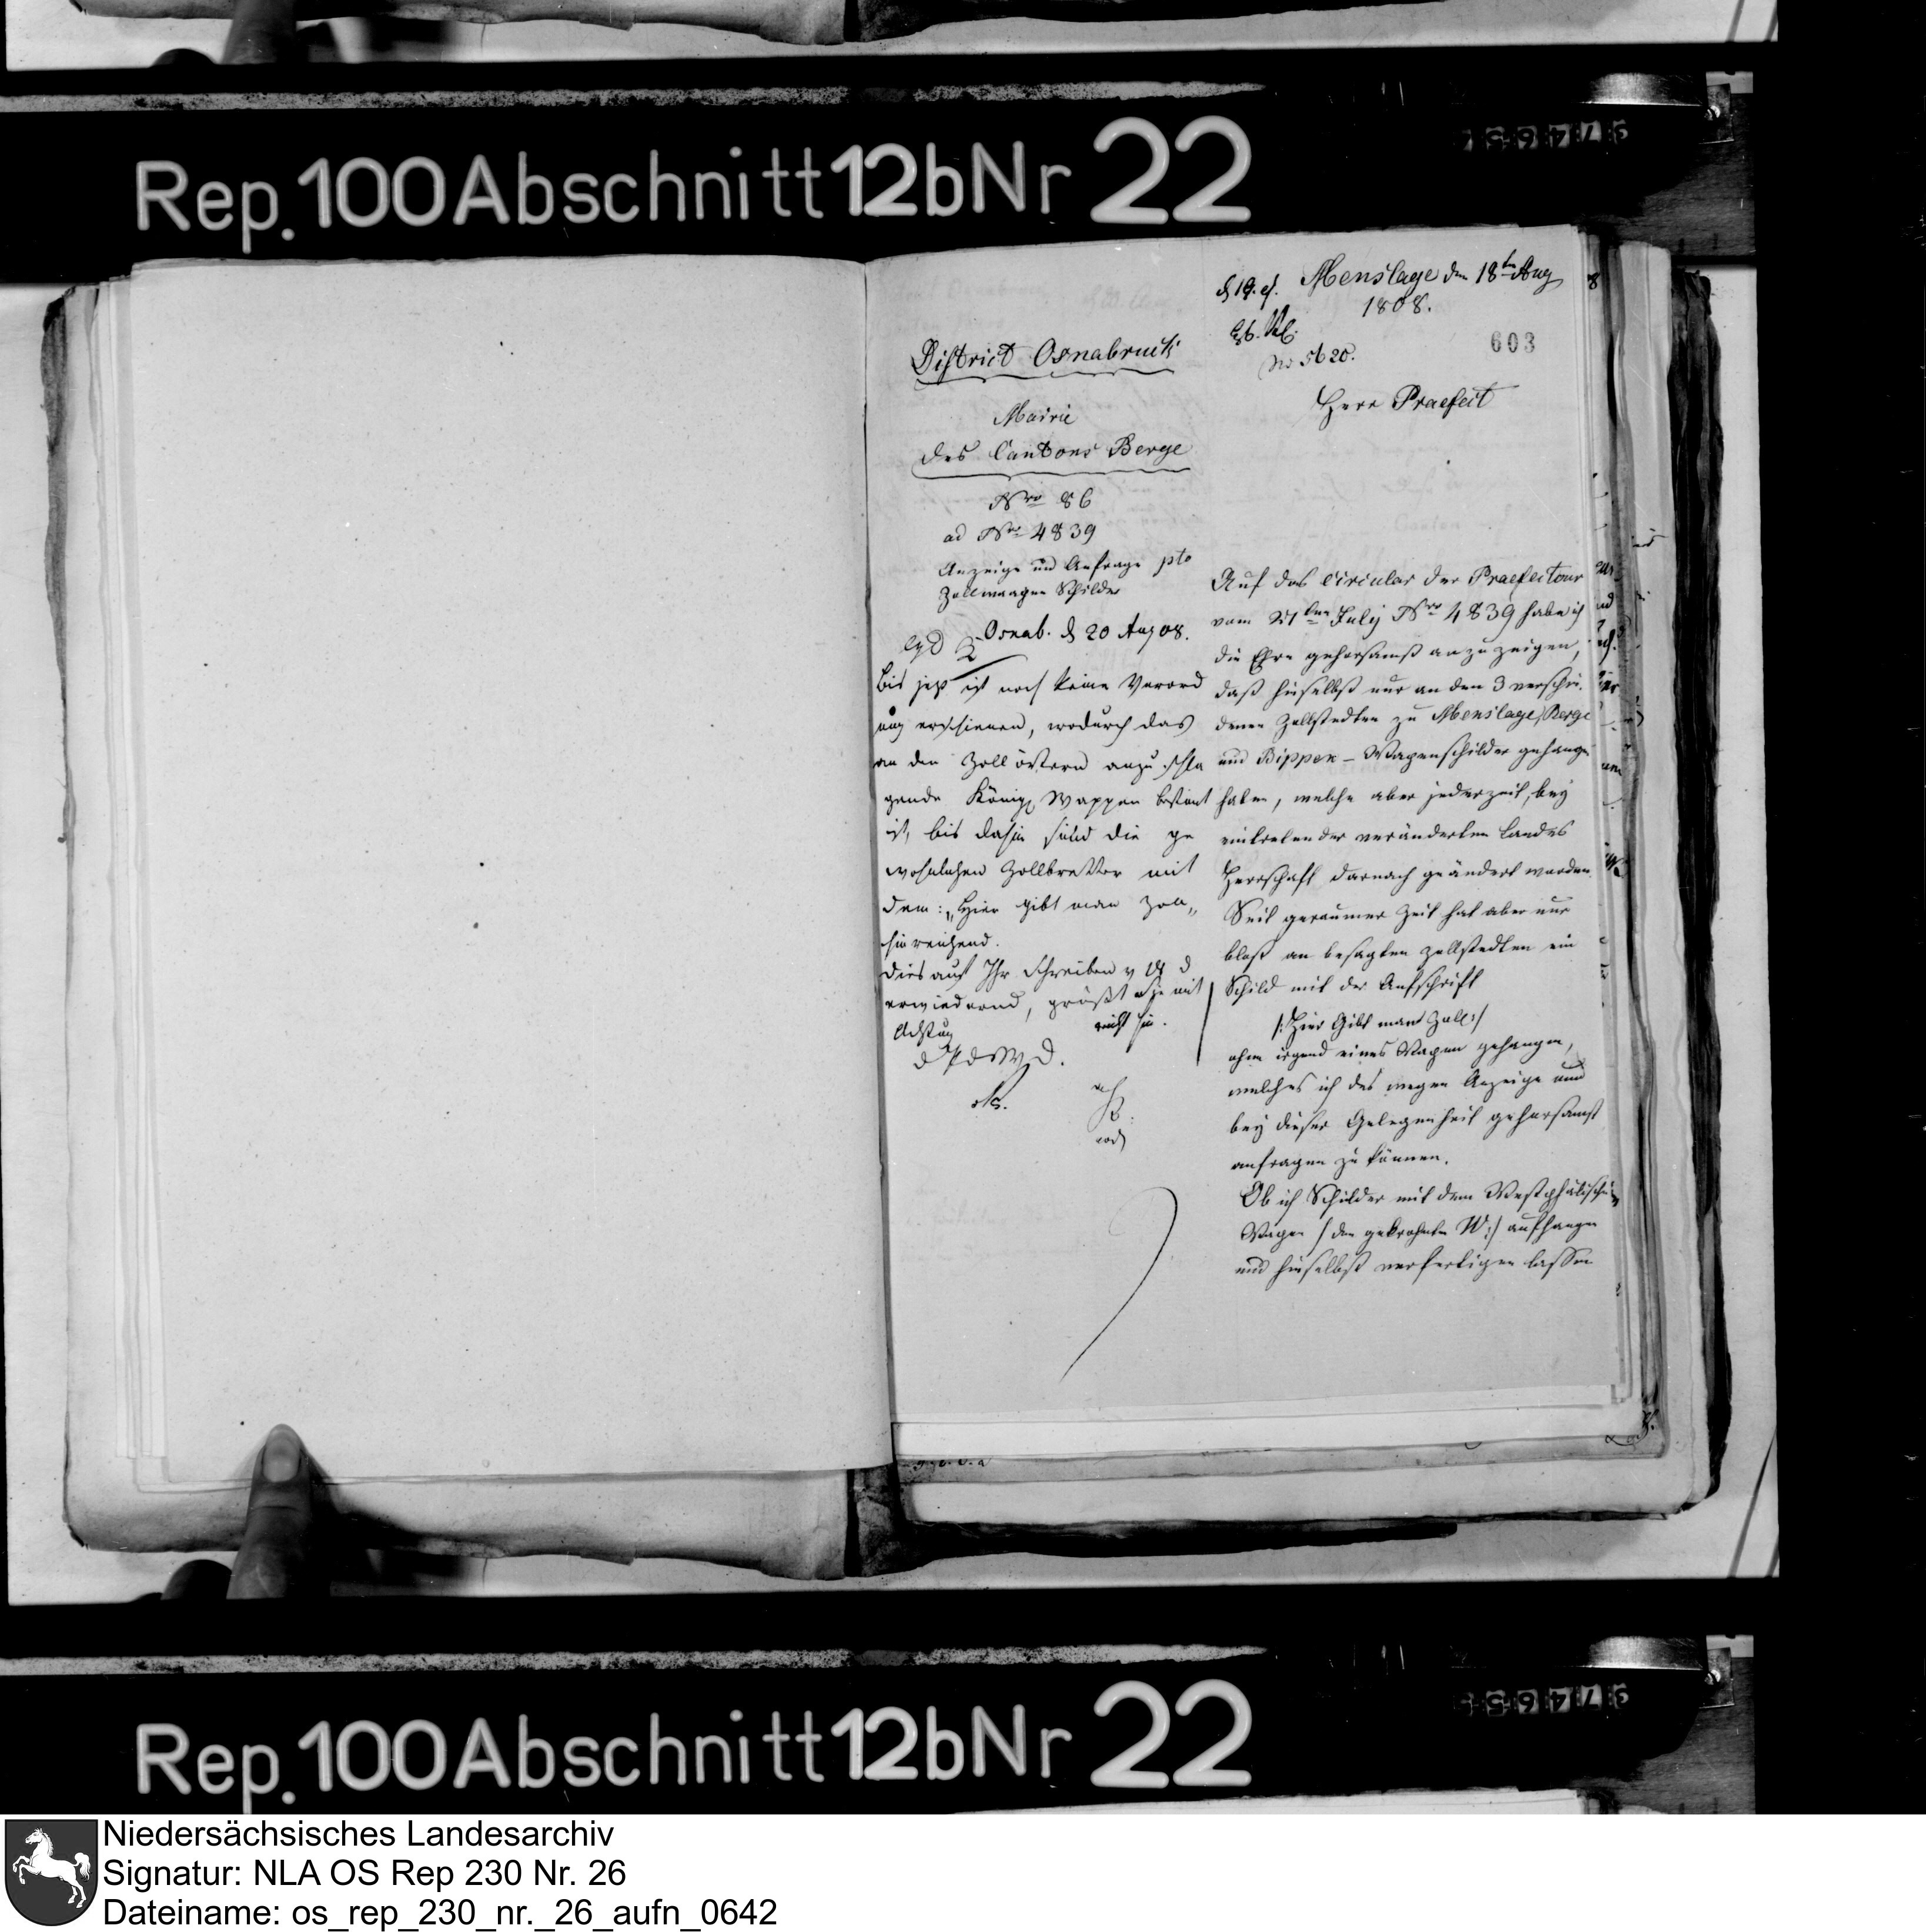 Rep. 100 Abschnitt 12b Nr 22
Menslage den 18ten Aug
1808.
No 5620.
603
Herr Praefect
District Osnabruck
Mairie
des Cantons Berge
Nro 86
ad Nro 4839
Anzeige und Anfrage pto
Zollwaagen Schilder
Osnab. d 20 Aug 08.
Bis jezt ist noch keine Verord
nung erschienen, wodurch das
an den Zoll örtern anzuschla
gende Königl Wappen bestimt
ist, bis dahin sind die ge
wohnlichen Zollbretter mit
dem: „Hier gibt man Zoll„
hinreichend.
Dies auf Ihr Schreiben v 18 d
erwiedernd, grüßt Sie mit
Achtung
Auf das Circular der Praefectour
vom 21ten July Nro 4839 habe ich
die Ehre gehorsamst anzuzeigen,
daß hieselbst nur an den 3 verschie-
denen Zollstedten zu Menslage, Berge
und Bippen – Wapenschilder gehangen
haben, welche aber jederzeit, bey
eintretender veränderten Landes
Herrschaft darnach geändert worden.
Seit geraumer Zeit hat aber nur
bloß an besagten Zollstedten ein
Schild mit der Aufschrift
/:Hier Gibt man Zoll:/
ohne irgend eines Wapen gehangen,
welches ich des wegen Anzeige und
bey dieser Gelegenheit gehorsamst
anfragen zu können.
Ob ich Schilder mit dem Westphälischen
Wapen / den gekrohnten W:/ aufhangen
und hieselbst verfertigen lassen
Rep. 100 Abschnitt 12b Nr 22
Niedersächsisches Landesarchiv
Signatur: NLA OS Rep 230 Nr. 26
Dateiname: os_rep_230_nr._26_aufn_0642